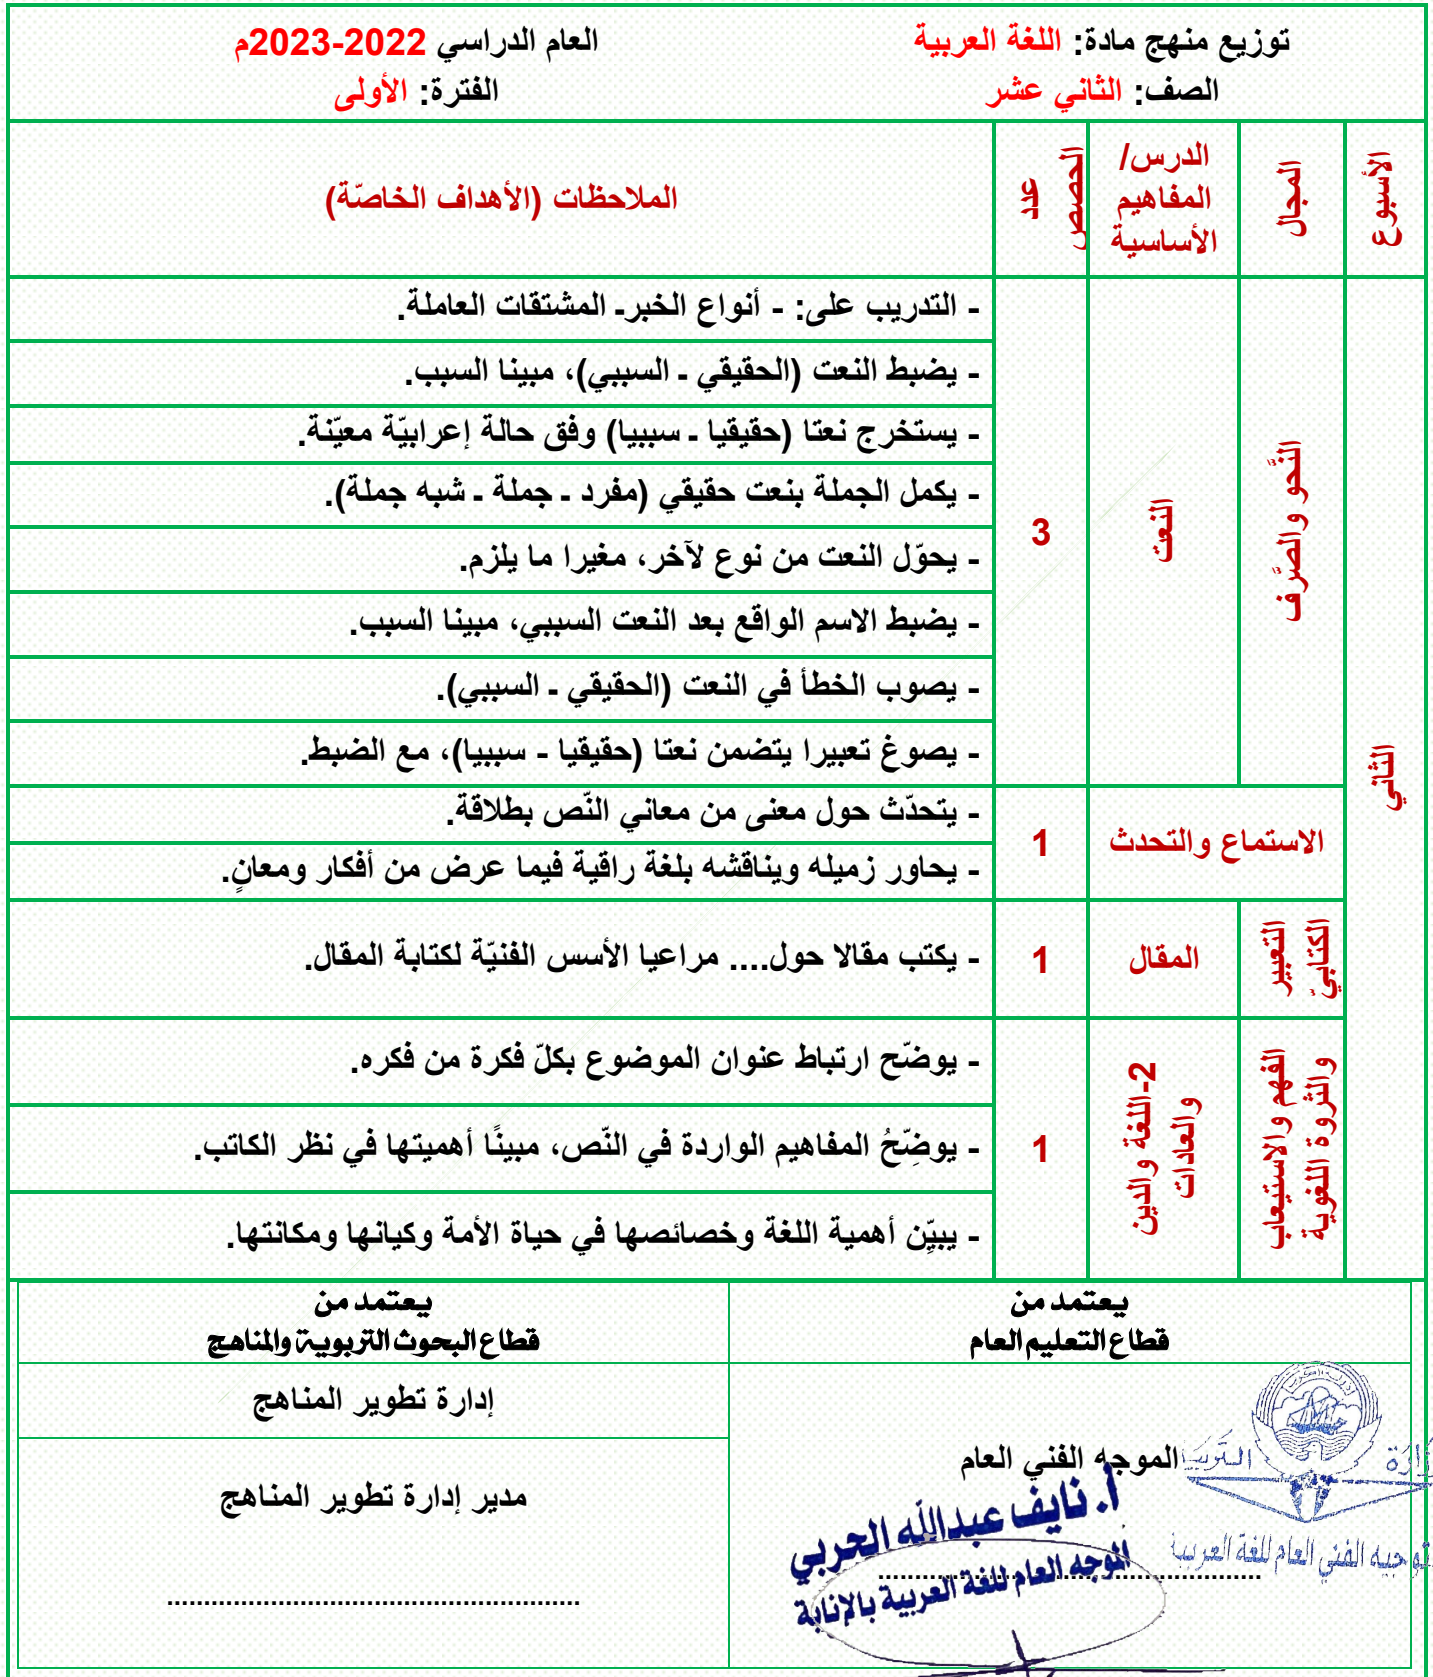 توزيع منهج مادة: اللغة العربية
العام الدراسي 2022-2023م
الصف: الثاني عشر
الفترة: الأولى
الأسبوع
المجال
الدرس/
المفاهيم
الأساسية
عدد
الحصص
الملاحظات (الأهداف الخاصّة)
الثاني
النَّحو والصَّرف
النعت
3
- التدريب على: - أنواع الخبر- المشتقات العاملة.
- يضبط النعت (الحقيقي - السببي)، مبينا السبب.
- يستخرج نعتا (حقيقيا - سببيا) وفق حالة إعرابيّة معيّنة.
- يكمل الجملة بنعت حقيقي (مفرد - جملة - شبه جملة).
- يحوّل النعت من نوع لآخر، مغيرا ما يلزم.
- يضبط الاسم الواقع بعد النعت السببي، مبينا السبب.
- يصوب الخطأ في النعت (الحقيقي - السببي).
- يصوغ تعبيرا يتضمن نعتا (حقيقيا - سببيا)، مع الضبط.
الاستماع والتحدث
1
- يتحدّث حول معنى من معاني النّص بطلاقة.
- يحاور زميله ويناقشه بلغة راقية فيما عرض من أفكار ومعانٍ.
التعبير
الكتابيّ
المقال
1
- يكتب مقالا حول.... مراعيا الأسس الفنيّة لكتابة المقال.
الفهم والاستيعاب
والثروة اللغوية
2-اللغة والدين
والعادات
1
- يوضّح ارتباط عنوان الموضوع بكلّ فكرة من فكره.
- يوضِّحُ المفاهيم الواردة في النّص، مبينًا أهميتها في نظر الكاتب.
- يبيِّن أهمية اللغة وخصائصها في حياة الأمة وكيانها ومكانتها.
يعتمد من
قطاع التعليم العام
يعتمد من
قطاع البحوث التربوية والمناهج
إدارة تطوير المناهج
الموجه الفني العام
مدير إدارة تطوير المناهج
أ. نايف عبدالله الحربي
الموجه العام للغة العربية بالإنابة
التربية
توجيه الفني العام للغة العربية